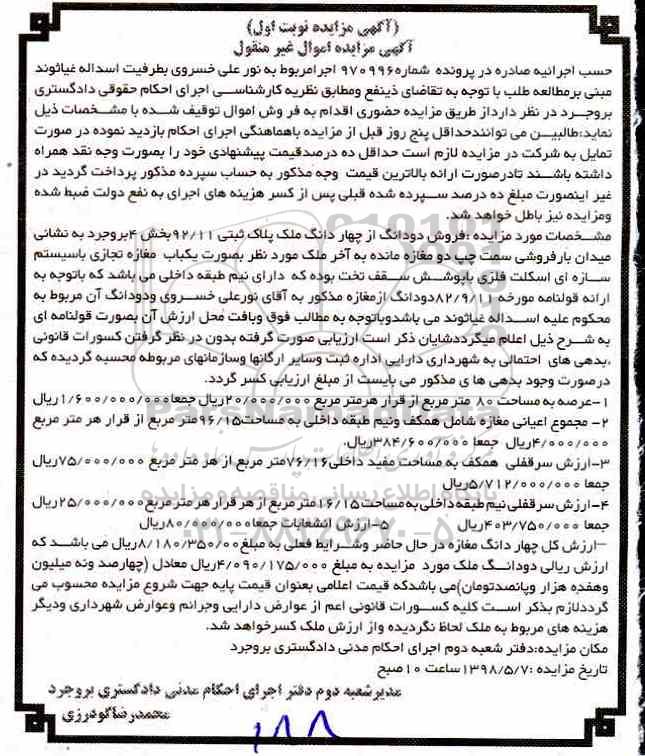 (آگهی مزایده نوبت اول)
آگهی مزایده اموال غیر منقول
حسب اجرائیه صادره در پرونده شماره۹۷۰۹۹۶ اجرامربوط به نور علی خسروی بطرفیت اسداله غیاثوند
مبنی برمطالعه طلب با توجه به تقاضای ذینفع ومطابق نظریه کارشناسی اجرای احکام حقوقی دادگستری
بروجرد در نظر دارداز طریق مزایده حضوری اقدام به فروش اموال توقیف شده با مشخصات ذیل
نماید:طالبین می توانندحداقل پنج روز قبل از مزایده باهماهنگی اجرای احکام بازدید نموده در صورت
تمایل به شرکت در مزایده لازم است حداقل ده درصدقیمت پیشنهادی خود را بصورت وجه نقد همراه
داشته باشند تادرصورت ارائه بالاترین قیمت وجه مذکور به حساب سپرده مذکور پرداخت گردید در
غیر اینصورت مبلغ ده درصد سپرده شده قبلی پس از کسر هزینه های اجرای به نفع دولت ضبط شده
ومزایده نیز باطل خواهد شد.
مشخصات مورد مزایده :فروش دودانگ از چهار دانگ ملک پلاک ثبتی ۹۲/۱۱بخش ۴بروجرد به نشانی
میدان بارفروشی سمت چپ دو مغازه مانده به آخر ملک مورد نظر بصورت یکباب مغازه تجاری باسیستم
سازه ای اسکلت فلزی باپوشش سقف تخت بوده که دارای نیم طبقه داخلی می باشد که باتوجه به
ارائه قولنامه مورخه ۸۲/۹/۱۱دودانگ ازمغازه مذکور به آقای نورعلی خسروی ودودانگ آن مربوط به
محکوم علیه اسداله غیاثوند می باشدوباتوجه به مطالب فوق وبافت محل ارزش آن بصورت قولنامه ای
به شرح ذیل اعلام میگرددشایان ذکر است ارزیابی صورت گرفته بدون در نظر گرفتن کسورات قانونی
،بدهی های احتمالی به شهرداری دارایی اداره ثبت وسایر ارگانها وسازمانهای مربوطه محسبه گردیده که
درصورت وجود بدهی ها ی مذکور می بایست از مبلغ ارزیابی کسر گردد.
۱-عرصه به مساحت ۸۰ متر مربع از قرار هرمتر مربع ۲۰/۰۰۰/۰۰۰ریال جمعا۱/۶۰۰/۰۰۰/۰۰۰ریال
۲- مجموع اعیانی مغازه شامل همکف ونیم طبقه داخلی به مساحت۹۶/۱۵متر مربع از قرار هر متر مربع
۴/۰۰۰/۰۰۰ریال جمعا ۳۸۴/۶۰۰/۰۰۰ریال.
۳-ارزش سرقفلی همکف به مساحت مفید داخلی۷۶/۱۶متر مربع از هر متر مربع ۷۵/۰۰۰/۰۰۰ریال
جمعا ۵/۷۱۲/۰۰۰/۰۰۰ریال
۴-ارزش سرقفلی نیم طبقه داخلی به مساحت۱۶/۱۵متر مربع از هر قرار هر متر مربع۲۵/۰۰۰/۰۰۰ریال
جمعا ۴۰۳/۷۵۰/۰۰۰ریال ۵-ارزش انشعابات جمعا۸۰/۰۰۰/۰۰۰ریال
-ارزش کل چهار دانگ مغازه در حال حاضر وشرایط فعلی به مبلغ۸/۱۸۰/۳۵۰/۰۰۰ریال می باشد که
ارزش ریالی دودانگ ملک مورد مزایده به مبلغ ۴/۰۹۰/۱۷۵/۰۰۰ریال معادل (چهارصد ونه میلیون
وهفده هزار وپانصدتومان)می باشدکه قیمت اعلامی بعنوان قیمت پایه جهت شروع مزایده محسوب می
گرددلازم بذکر است کلیه کسورات قانونی اعم از عوارض دارایی وجرائم وعوارض شهرداری ودیگر
هزینه های مربوط به ملک لحاظ نگردیده واز ارزش ملک کسرخواهد شد.
مکان مزایده:دفتر شعبه دوم اجرای احکام مدنی دادگستری بروجرد
تاریخ مزایده :۱۳۹۸/۵/۷ساعت ۱۰صبح
مدیرشعبه دوم دفتر اجرای احکام مدنی دادگستری بروجرد
محمدرضاگودرزی
۱۸۸